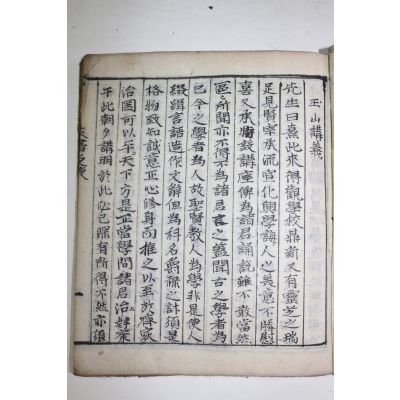 玉山講義
先生曰熹此來得觀學校鼎新又有靈芝之瑞
足見賢宰承流宣化興學誨人之美意不勝慰
喜又承特設講座俾爲諸君誦說雖不敢當然
區之所聞亦不得不爲諸君言之蓋聞古之學者爲
已今之學者爲人故聖賢教人爲學非是使人
綴緝言語造作文辭但爲科名爵祿之計須是
格物致知誠意正心修身而推之以至於齊家
治國可以平天下方是正當學問諸君治 業
於此朝夕講明於此必已深有所得不然亦須